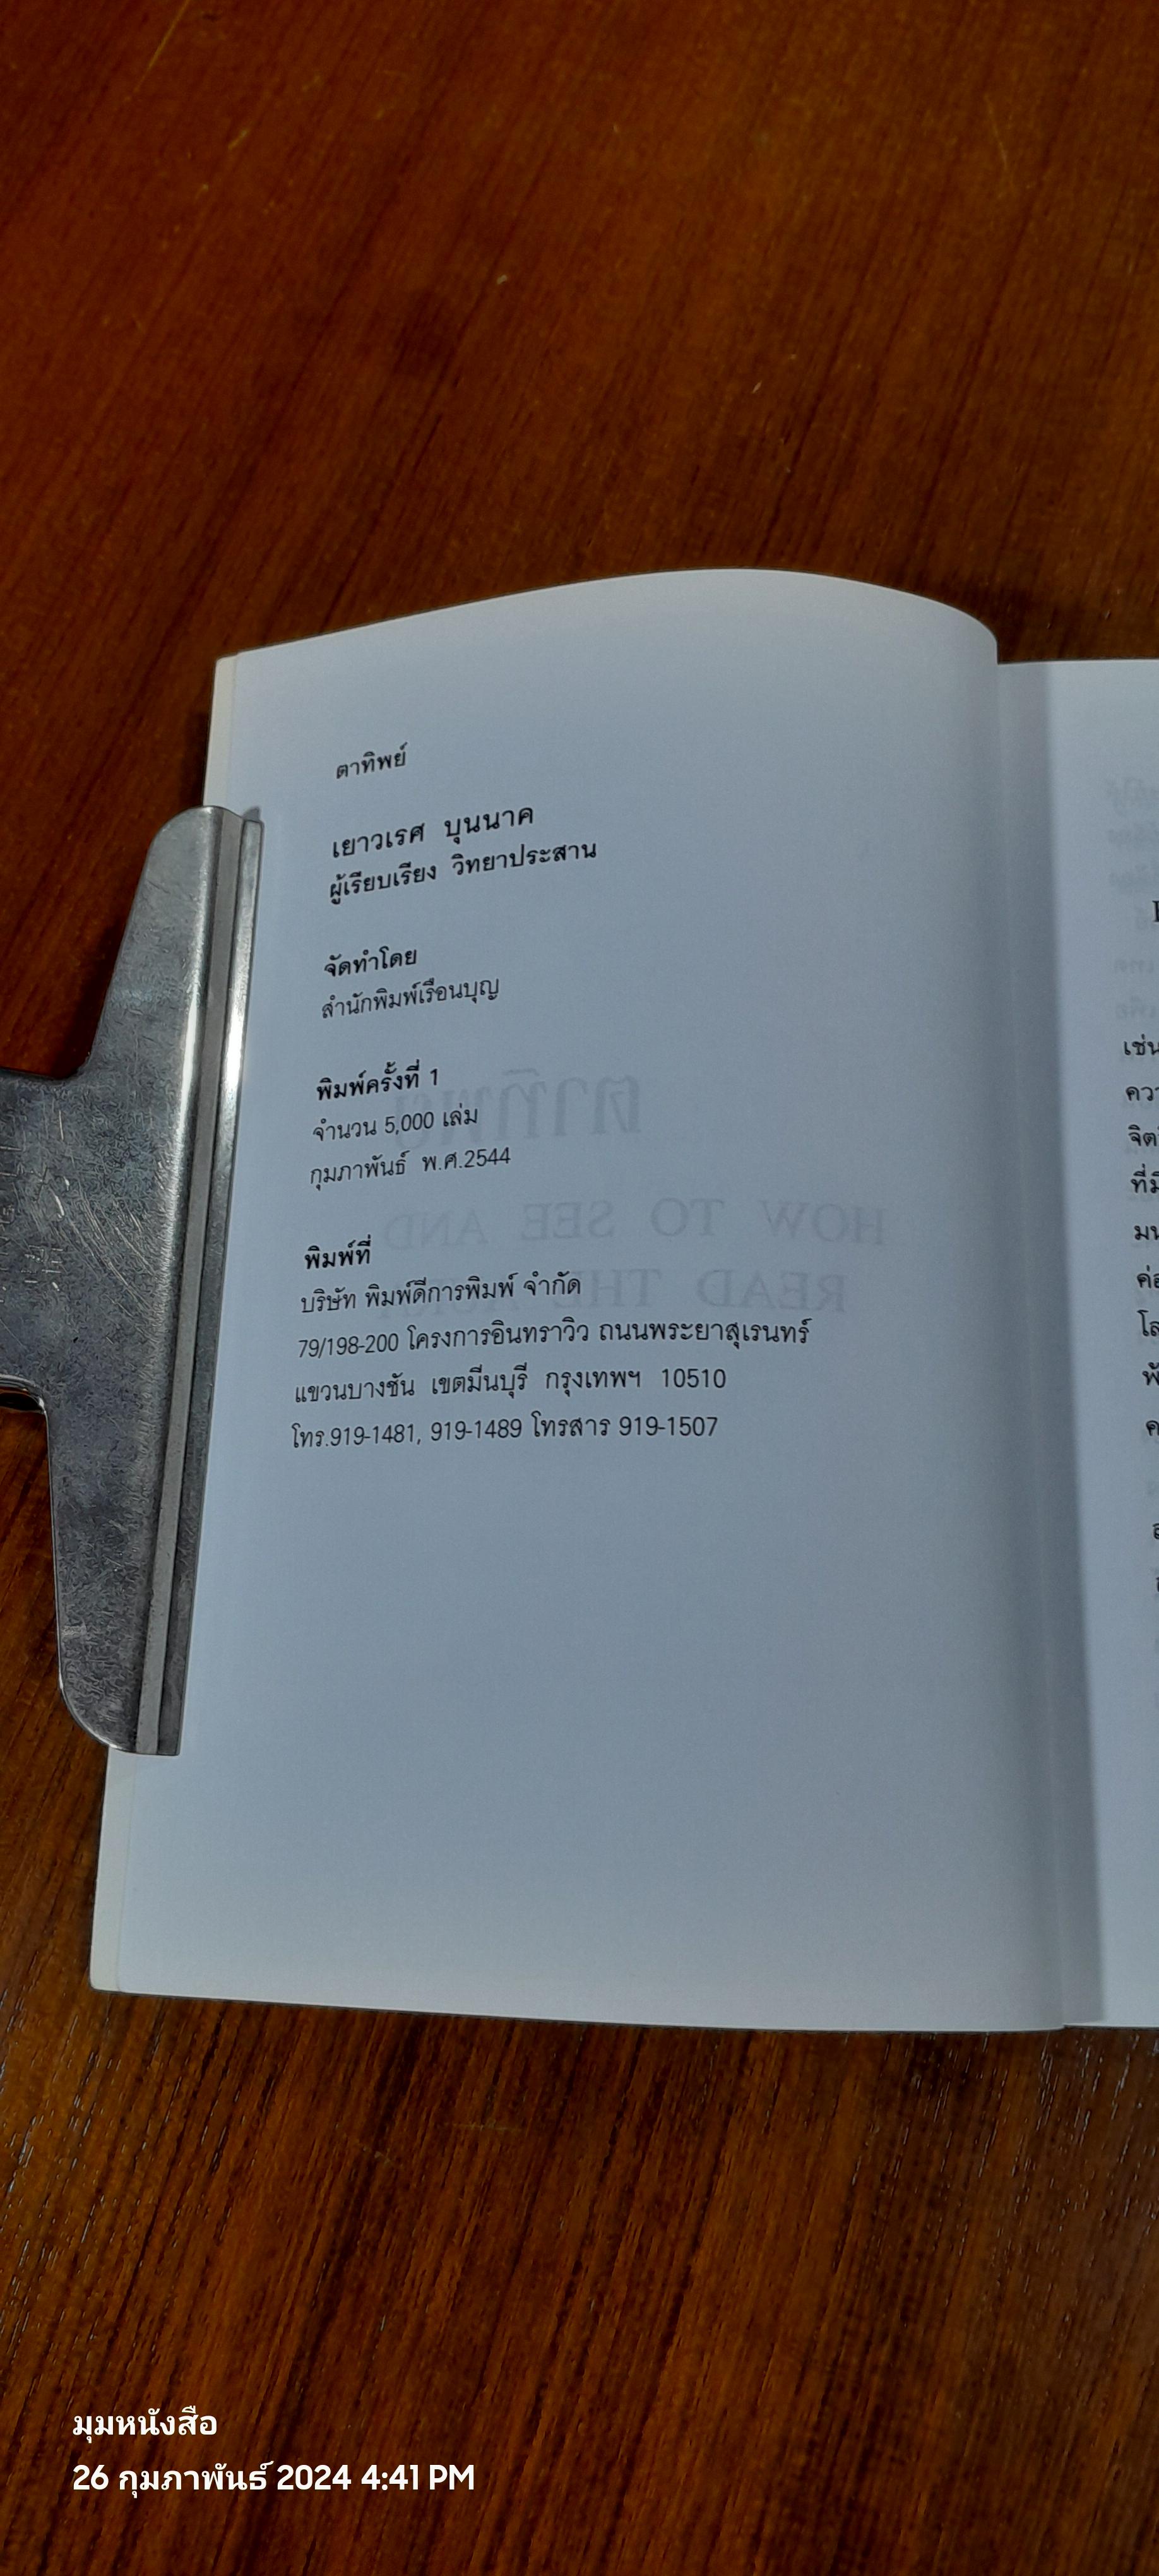 ตาทิพย์
เยาวเรศ บุนนาค
ผู้เรียบเรียง วิทยาประสาน
จัดทำโดย
สำนักพิมพ์เรือนบุญ
พิมพ์ครั้งที่ 1
จำนวน 5,000 เล่ม
กุมภาพันธ์ พ.ศ.2544
พิมพ์ที่
บริษัท พิมพ์ดีการพิมพ์ จำกัด
79/198-200 โครงการอินทราวิว ถนนพระยาสุเรนทร์
แขวนบางชัน เขตมีนบุรี กรุงเทพฯ 10510
โทร.919-1481, 919-1489 โทรสาร 919-1507
ตาทิพย์
HOW TO SEE AND
READ THE
เช่น
มุมหนังสือ
26 กุมภาพันธ์ 2024 4:41 PM